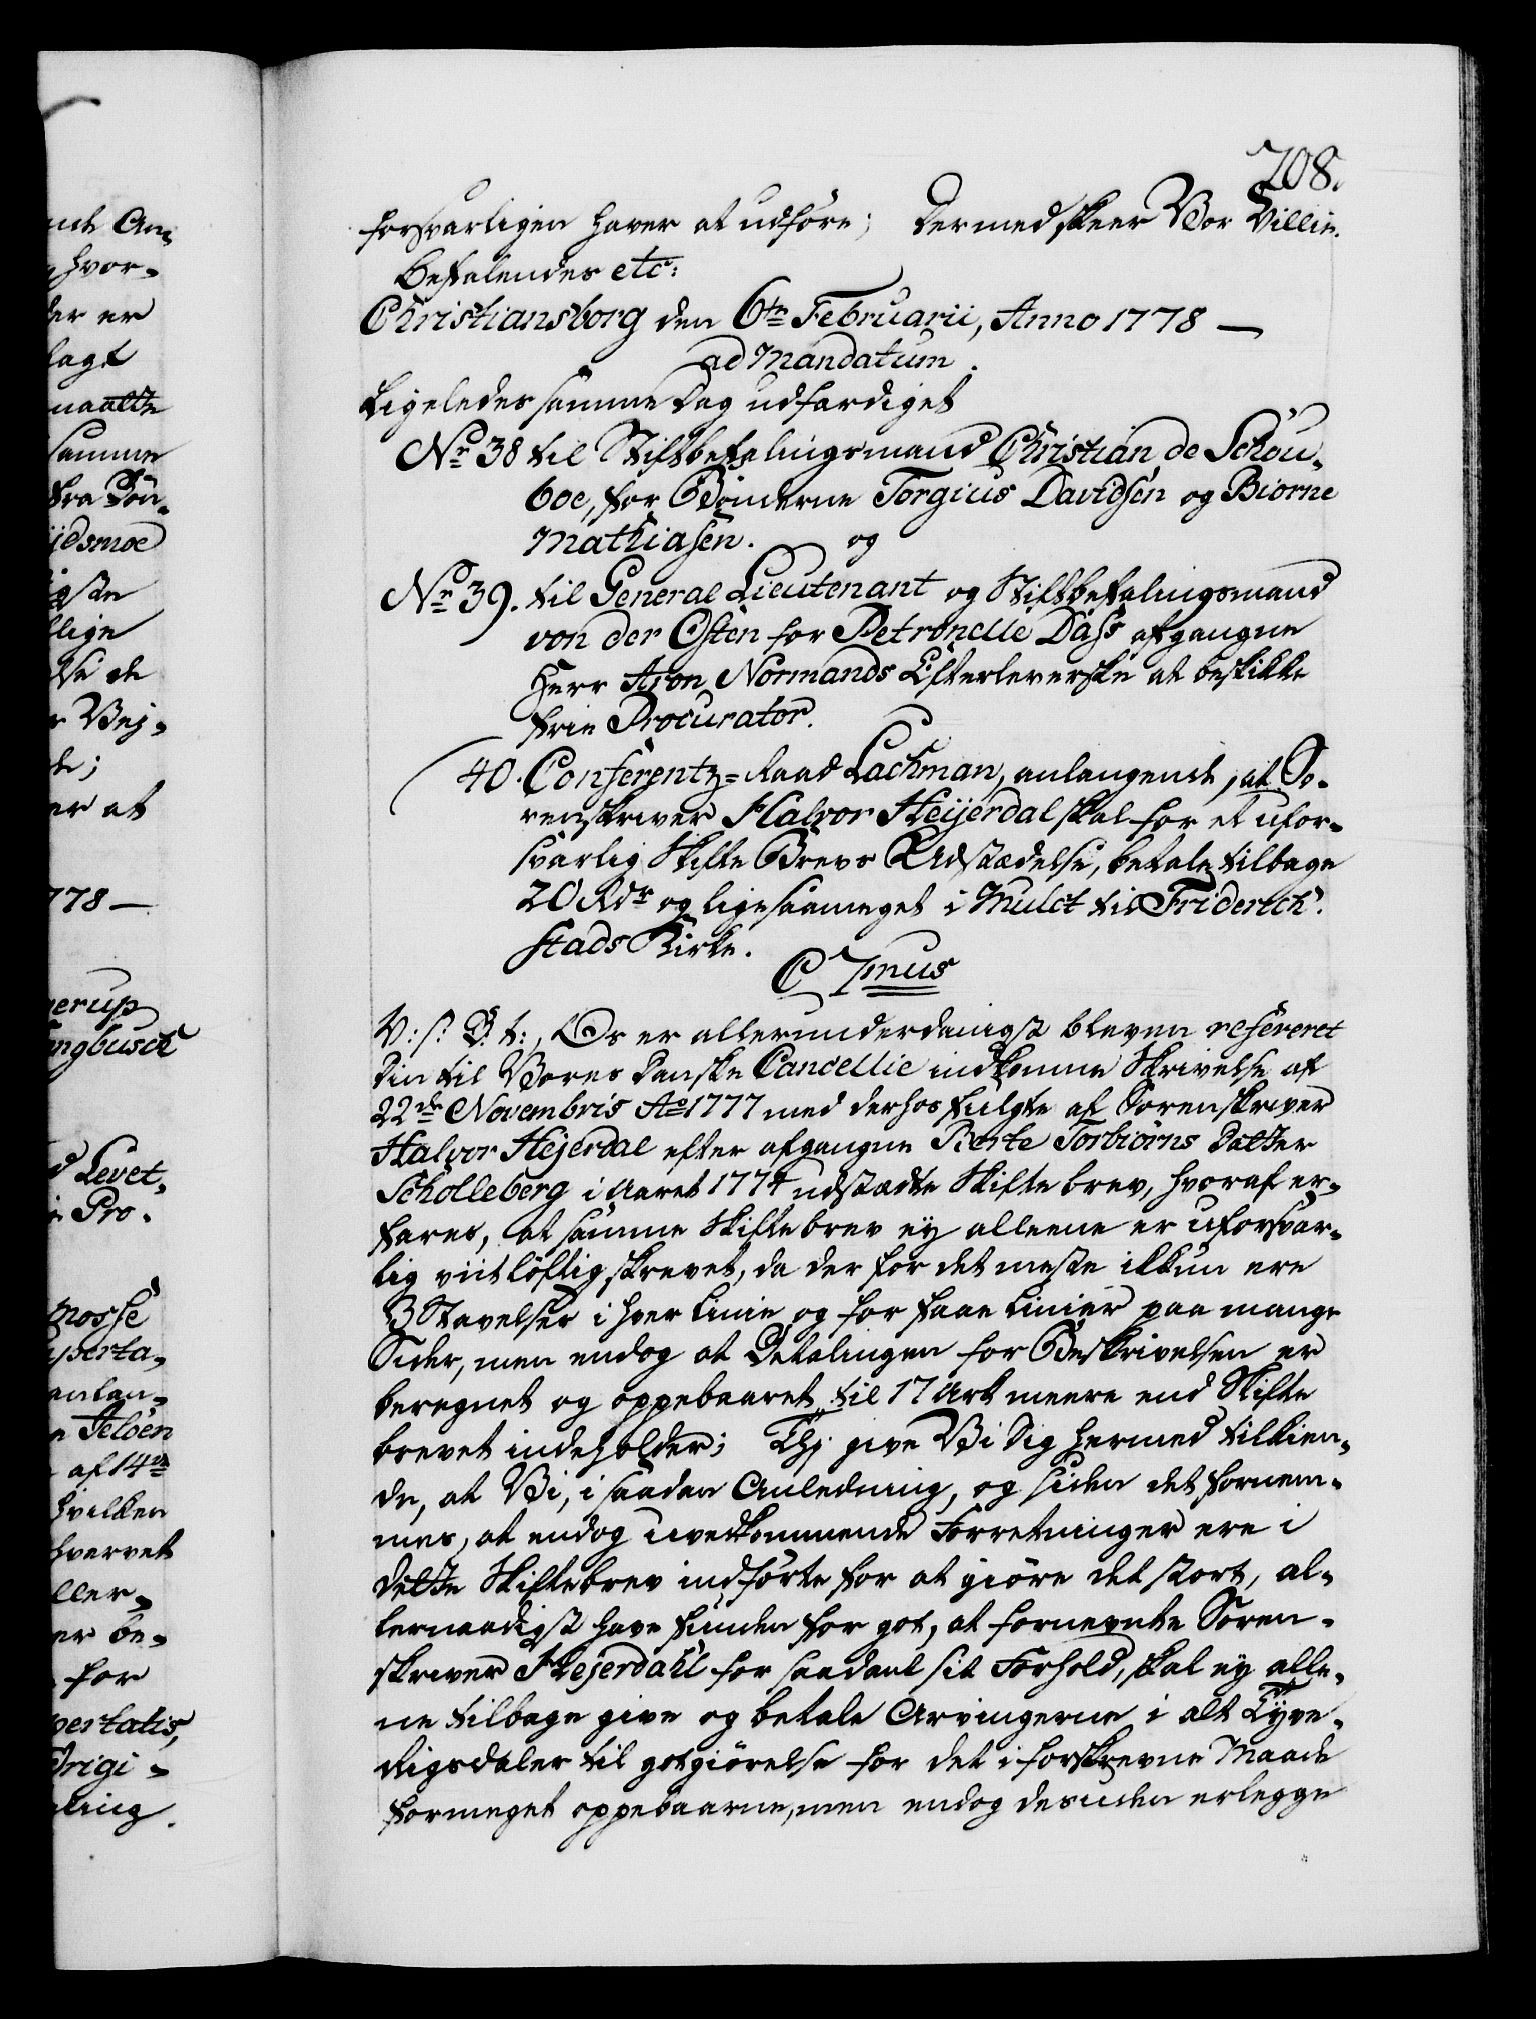 208.
forsvarligen haver at udföre; Dermed skeer Vor Villie.
Befalendes etc:
Christiansborg den 6te Februarii, Anno 1778 —
ad Mandatum.
Ligeledes samme Dag udfærdiget
No 38 til Stiftbefalingsmand Christian de Schou-
boe, for Bönderne Torgius Davidsen og Biorne
Mathiasen. og
No 39. til General Lieutenant og Stiftbefalingsmand
von der Osten for Petronelle Dass afgangne
Herr Aron Normands Efterleverske at beskikke
frie Procurator.
40. Conferentz-Raad Lachman, anlangende, at So-
renskriver Halvor Heijerdal skal for et ufor-
svarlig Skifte Brevs Udstædelse, betale tilbage
20 Rdr og ligesaameget i Mulct til Friderich-
stads Kirke.
C 7mus
V: s: G: t:, Os er allerunderdanigst bleven refereret
Din til Vores Danske Cancellie indkomne Skrivelse af
22de Novembris Ao 1777 med derhos fulgte af Sorenskriver
Halvor Hejerdal efter afgangne Berte Torbiörns Datter
Schölleberg i Aaret 1774 udstædte Skiftebrev, hvoraf er-
fares, at samme Skiftebrev ey alleene er uforsvar-
lig viitlöftig skrevet, da der for det meste ikkun ere
3 Stavelser i hver Linie og for faae Linier paa mange
Sider, men endog at Betalingen for Beskrivelsen er
beregnet og oppebaaret til 17 Ark meere end Skifte
brevet indeholder; Thj give Vi Dig hermed tilkien-
de, at Vi, i saadan Anledning, og siden det fornem-
mes, at endog uvedkommende Forretninger ere i
dette Skiftebrev indförte for at giöre det stort, al-
lernaadigst have funden for got, at fornevnte Soren-
skriver Hejerdahl for saadant sit Forhold, skal ey alle-
ne tilbage give og betale Arvingerne i alt Tyve
Rigsdaler til gotgiörelse for det i forskrevne Maade
formeget oppebaarne, men endog desuden erlegge